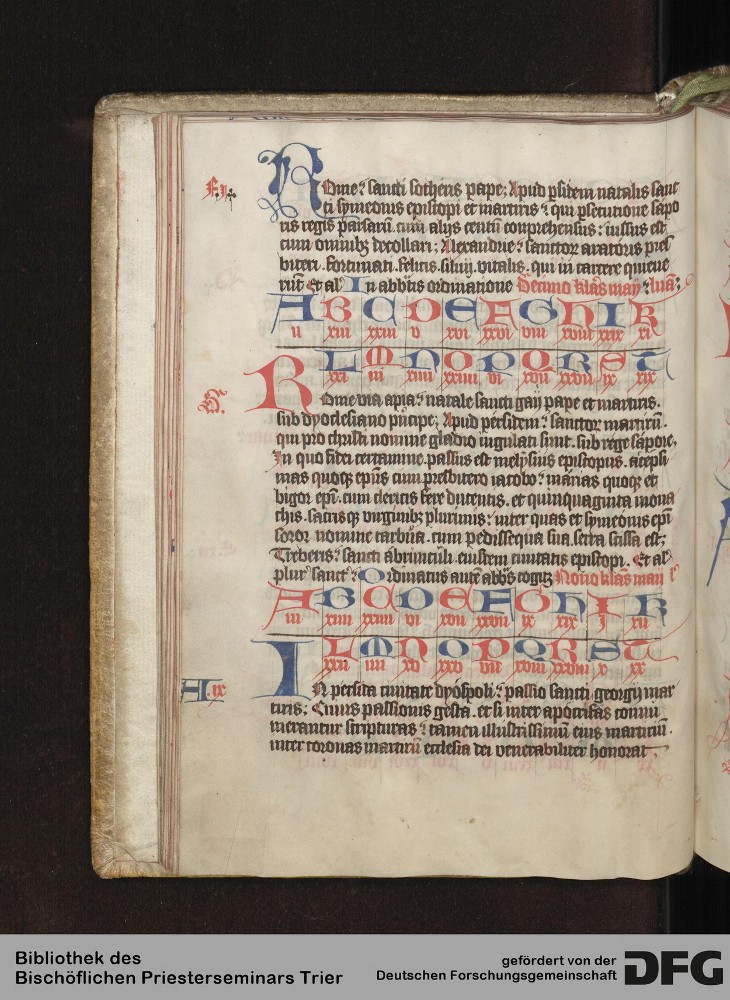 Rome : sancti sotheris pape ; Apud persidem natalis sanc
ti symeonis episcopi et martiris : qui persecutione sapo
ris regis
cum omnibꝫ decollati ; Alexandrie : sanctoꝝ aratoris pres
biteri . fortunati . felicis . silvij . vitalis . qui in carcere quieue
rūt Et al In abbtis ordinatione Decimo klās maij : luā ;
A B C D E F G H I K
ij xiii xxiii v xvi xxvi viii xviii xxix xi
L M N O P Q R S T
xxi iii xiiii xxiiii vi xvii xxvii ix xix
Rome via apia : natale sancti gaij pape et martiris .
sub dyoclesiano pⁱncipe ; Apud persidem : sanctoꝝ martirū .
qui pro christi nomine gladio iugulati sunt . sub rege sapore .
In quo fidei certamine . passus est melysius episcopus . acepsi
mas quoqꝫ ep̄us cum presbitero iacobo : marias quoqꝫ et
bigor ep̄i . cum clericis fere ducentis . et quinquaginta mona
chis . sacrisqꝫ virginibꝫ plurimis : inter quas et symeonis ep̄i
soror nomine tarbua . cum pedissequa sua . serra scissa est ;
Treberis : sancti abrunculi eiusdem ciuitatis episcopi . Et al
plurᵒ sanctᵒ : Ordinatus autē abbs cogitꝫ Nono klās maij l
A B C D E F G H I K
iii xiiii xxiiii vi xvii xxvii ix xix I xii
L M N O P Q R S T
xxii iiii xv xxv vii xviii xxviii x xx
A . ix
IN persida ciuitate dyospoli : passio sancti georgij mar
tiris ; Cuius passionis gesta . et si inter apocrifas connu
merantur scripturas : tamen illustrissimū eius martiriū .
inter coronas martirū ecclesia dei venerabiliter honorat
Bibliothek des
Bischöflichen Priesterseminars Trier
gefördert von der
Deutschen Forschungsgemeinschaft
DFG